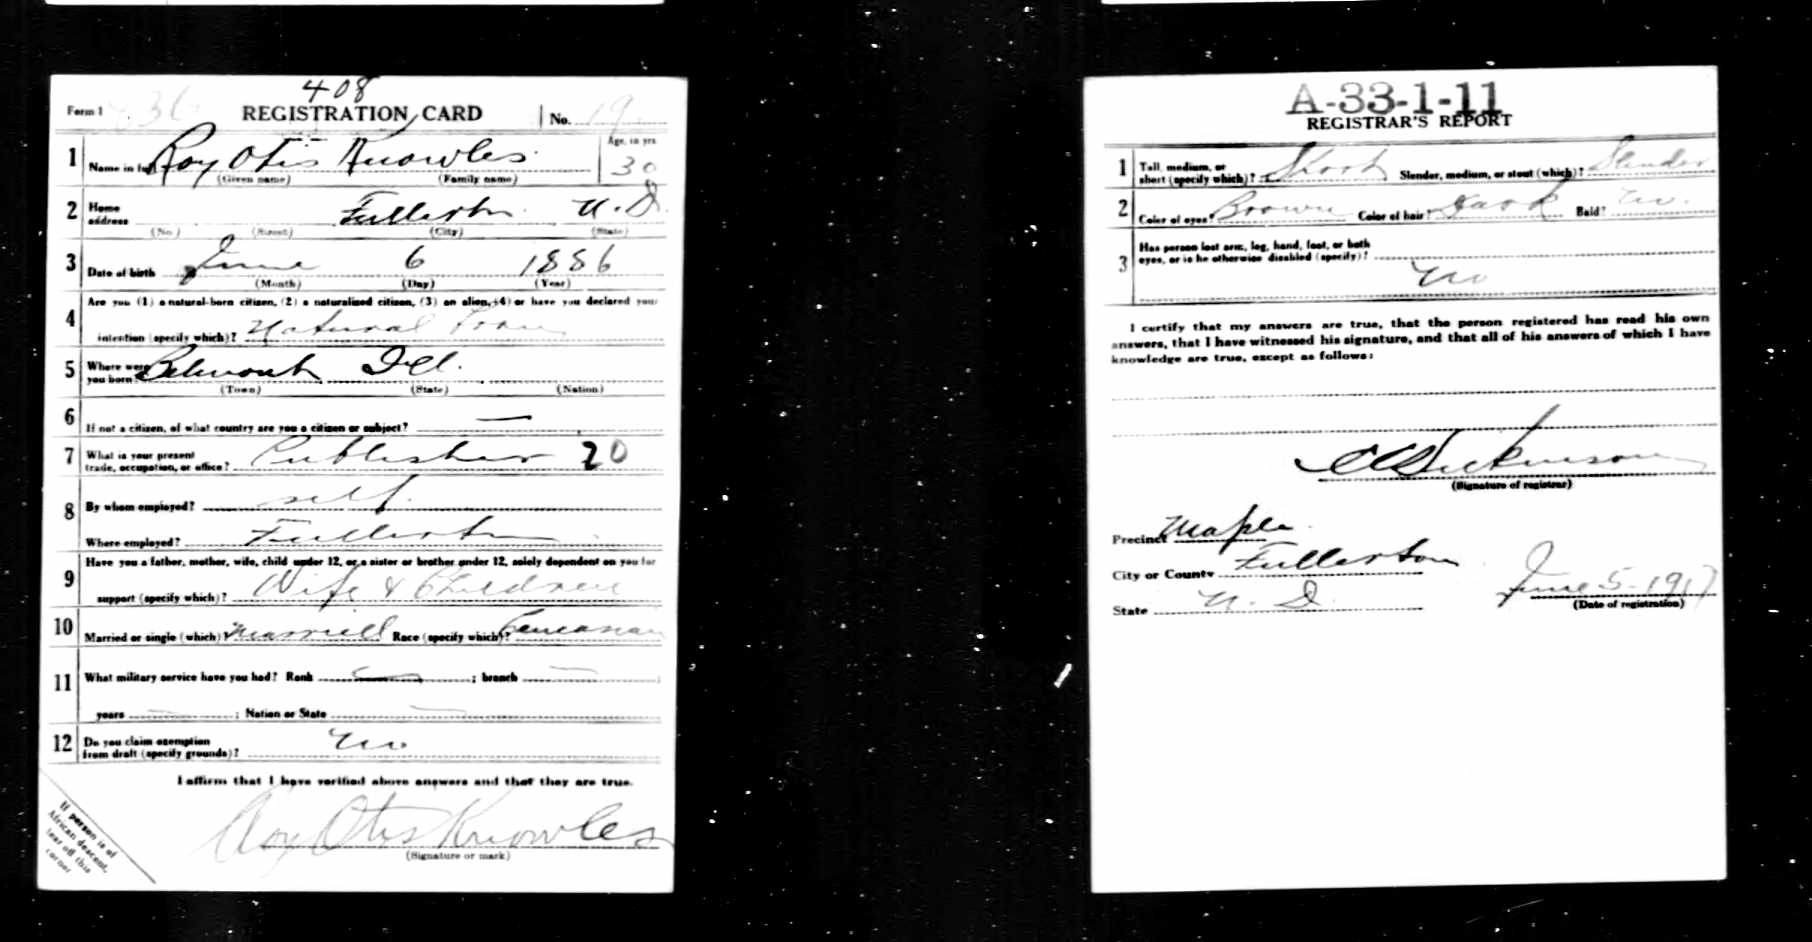 408
Form 1 REGISTRATION CARD No. 19
1 Name in full Roy Otis Knowles Age, in yrs 30
(Given name) (Family name)
2 Home address Fullerton N. D.
(No.) (Street) (City) (State)
3 Date of birth June 6 1886
(Month) (Day) (Year)
4 Are you (1) a natural-born citizen, (2) a naturalized citizen, (3) an alien, (4) or have you declared your
intention (specify which)? Natural born
5 Where were you born? Belmont Ill.
(Town) (State) (Nation)
6 If not a citizen, of what country are you a citizen or subject? —
7 What is your present trade, occupation, or office? Publisher 20
8 By whom employed? self.
Where employed? Fullerton
9 Have you a father, mother, wife, child under 12, or a sister or brother under 12, solely dependent on you for
support (specify which)? Wife & Children
10 Married or single (which)? Married Race (specify which)? Caucasian
11 What military service have you had? Rank — ; branch — ;
years — ; Nation or State —
12 Do you claim exemption from draft (specify grounds)? No
I affirm that I have verified above answers and that they are true.
Roy Otis Knowles
(Signature or mark)
If person is of
African descent,
tear off this
corner
A-33-1-11
REGISTRAR'S REPORT
1 Tall, medium, or short (specify which)? Short Slender, medium, or stout (which)? Slender
2 Color of eyes? Brown Color of hair? Dark Bald? No.
3 Has person lost arm, leg, hand, foot, or both
eyes, or is he otherwise disabled (specify)?
No
I certify that my answers are true, that the person registered has read his own
answers, that I have witnessed his signature, and that all of his answers of which I have
knowledge are true, except as follows:
Dickinson
(Signature of registrar)
Precinct Maple
City or County Fullerton
State N. D.
June 5 - 1917
(Date of registration)